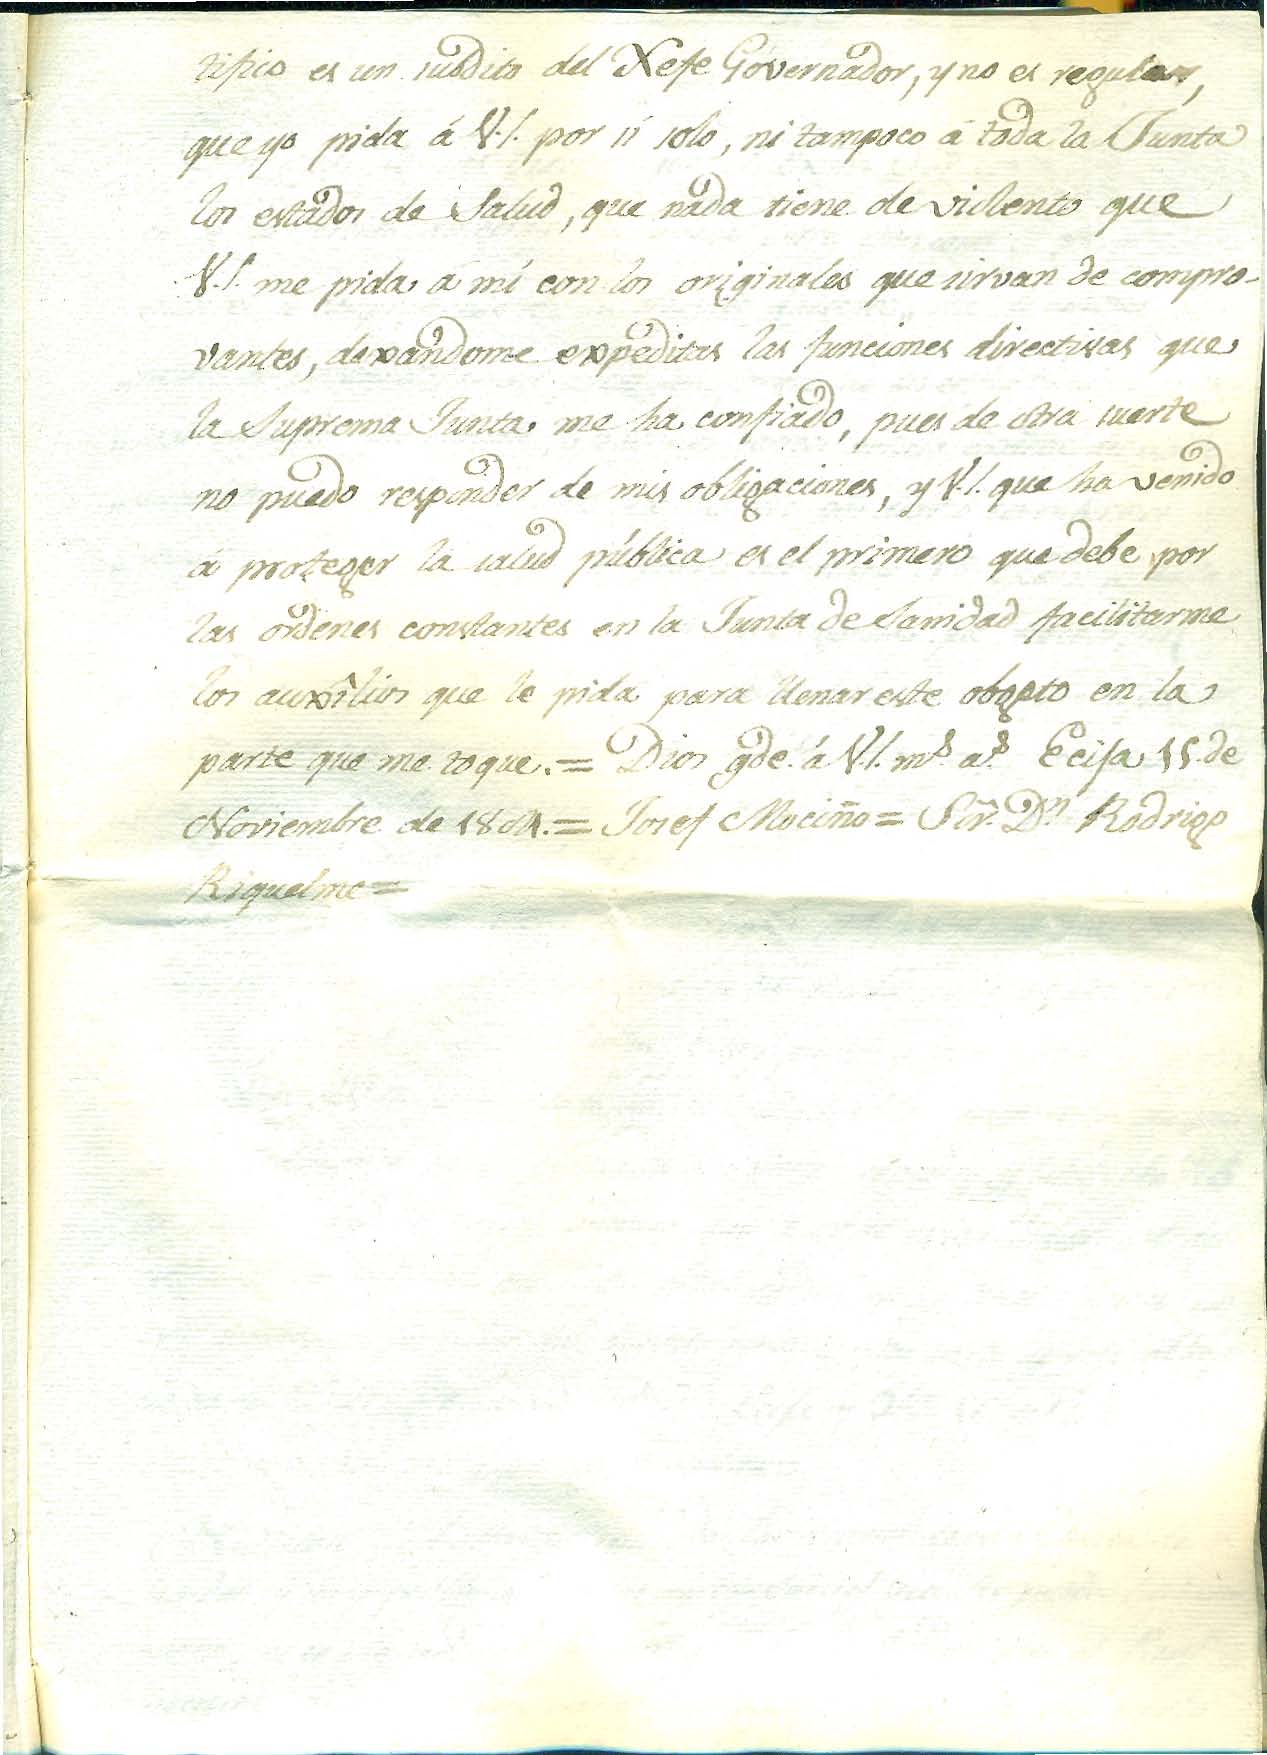 tifico es un subdito del Xefe Governador, y no es regular,
que yo pida á V.S. por sí solo, ni tampoco á toda la Junta
los estados de Salud, que nada tiene de violento que
V.S. me pida á mí con los originales que sirvan de compro-
vantes, dexandome expeditas las funciones directivas que
la Suprema Junta me ha confiado, pues de otra suerte
no puedo responder de mis obligaciones, y V.S. que ha venido
á proteger la salud pública es el primero que debe por
las ordenes constantes en la Junta de Sanidad facilitarme
los auxîlios que le pida para llenar este obgeto en la
parte que me toque. = Dios gde. á V.S. ms. as. Ecija 11 de
Noviembre de 1804. = Josef Mociño = Sor. Dn. Rodrigo
Riquelme =